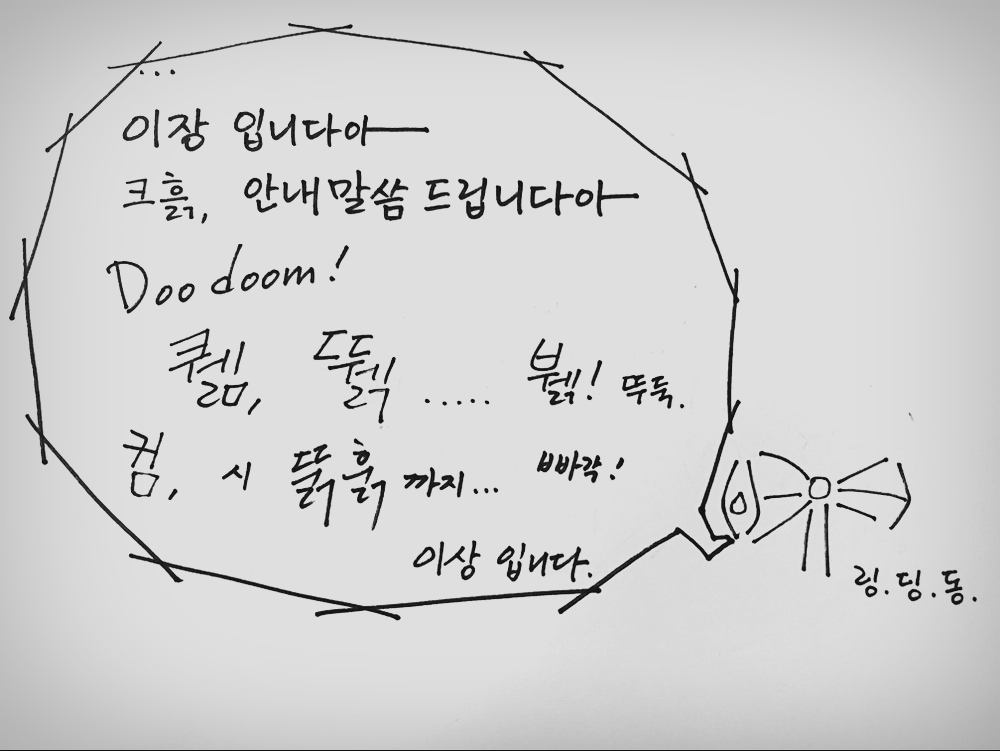 ...
이장 입니다아—
크흙, 안내말씀 드립니다아—
Doo doom!
퀢, 드뒑 ..... 붥! 뚜둑.
컴, 시 뚥흙 까지... 빠각!
이상 입니다.
링.딩.동.